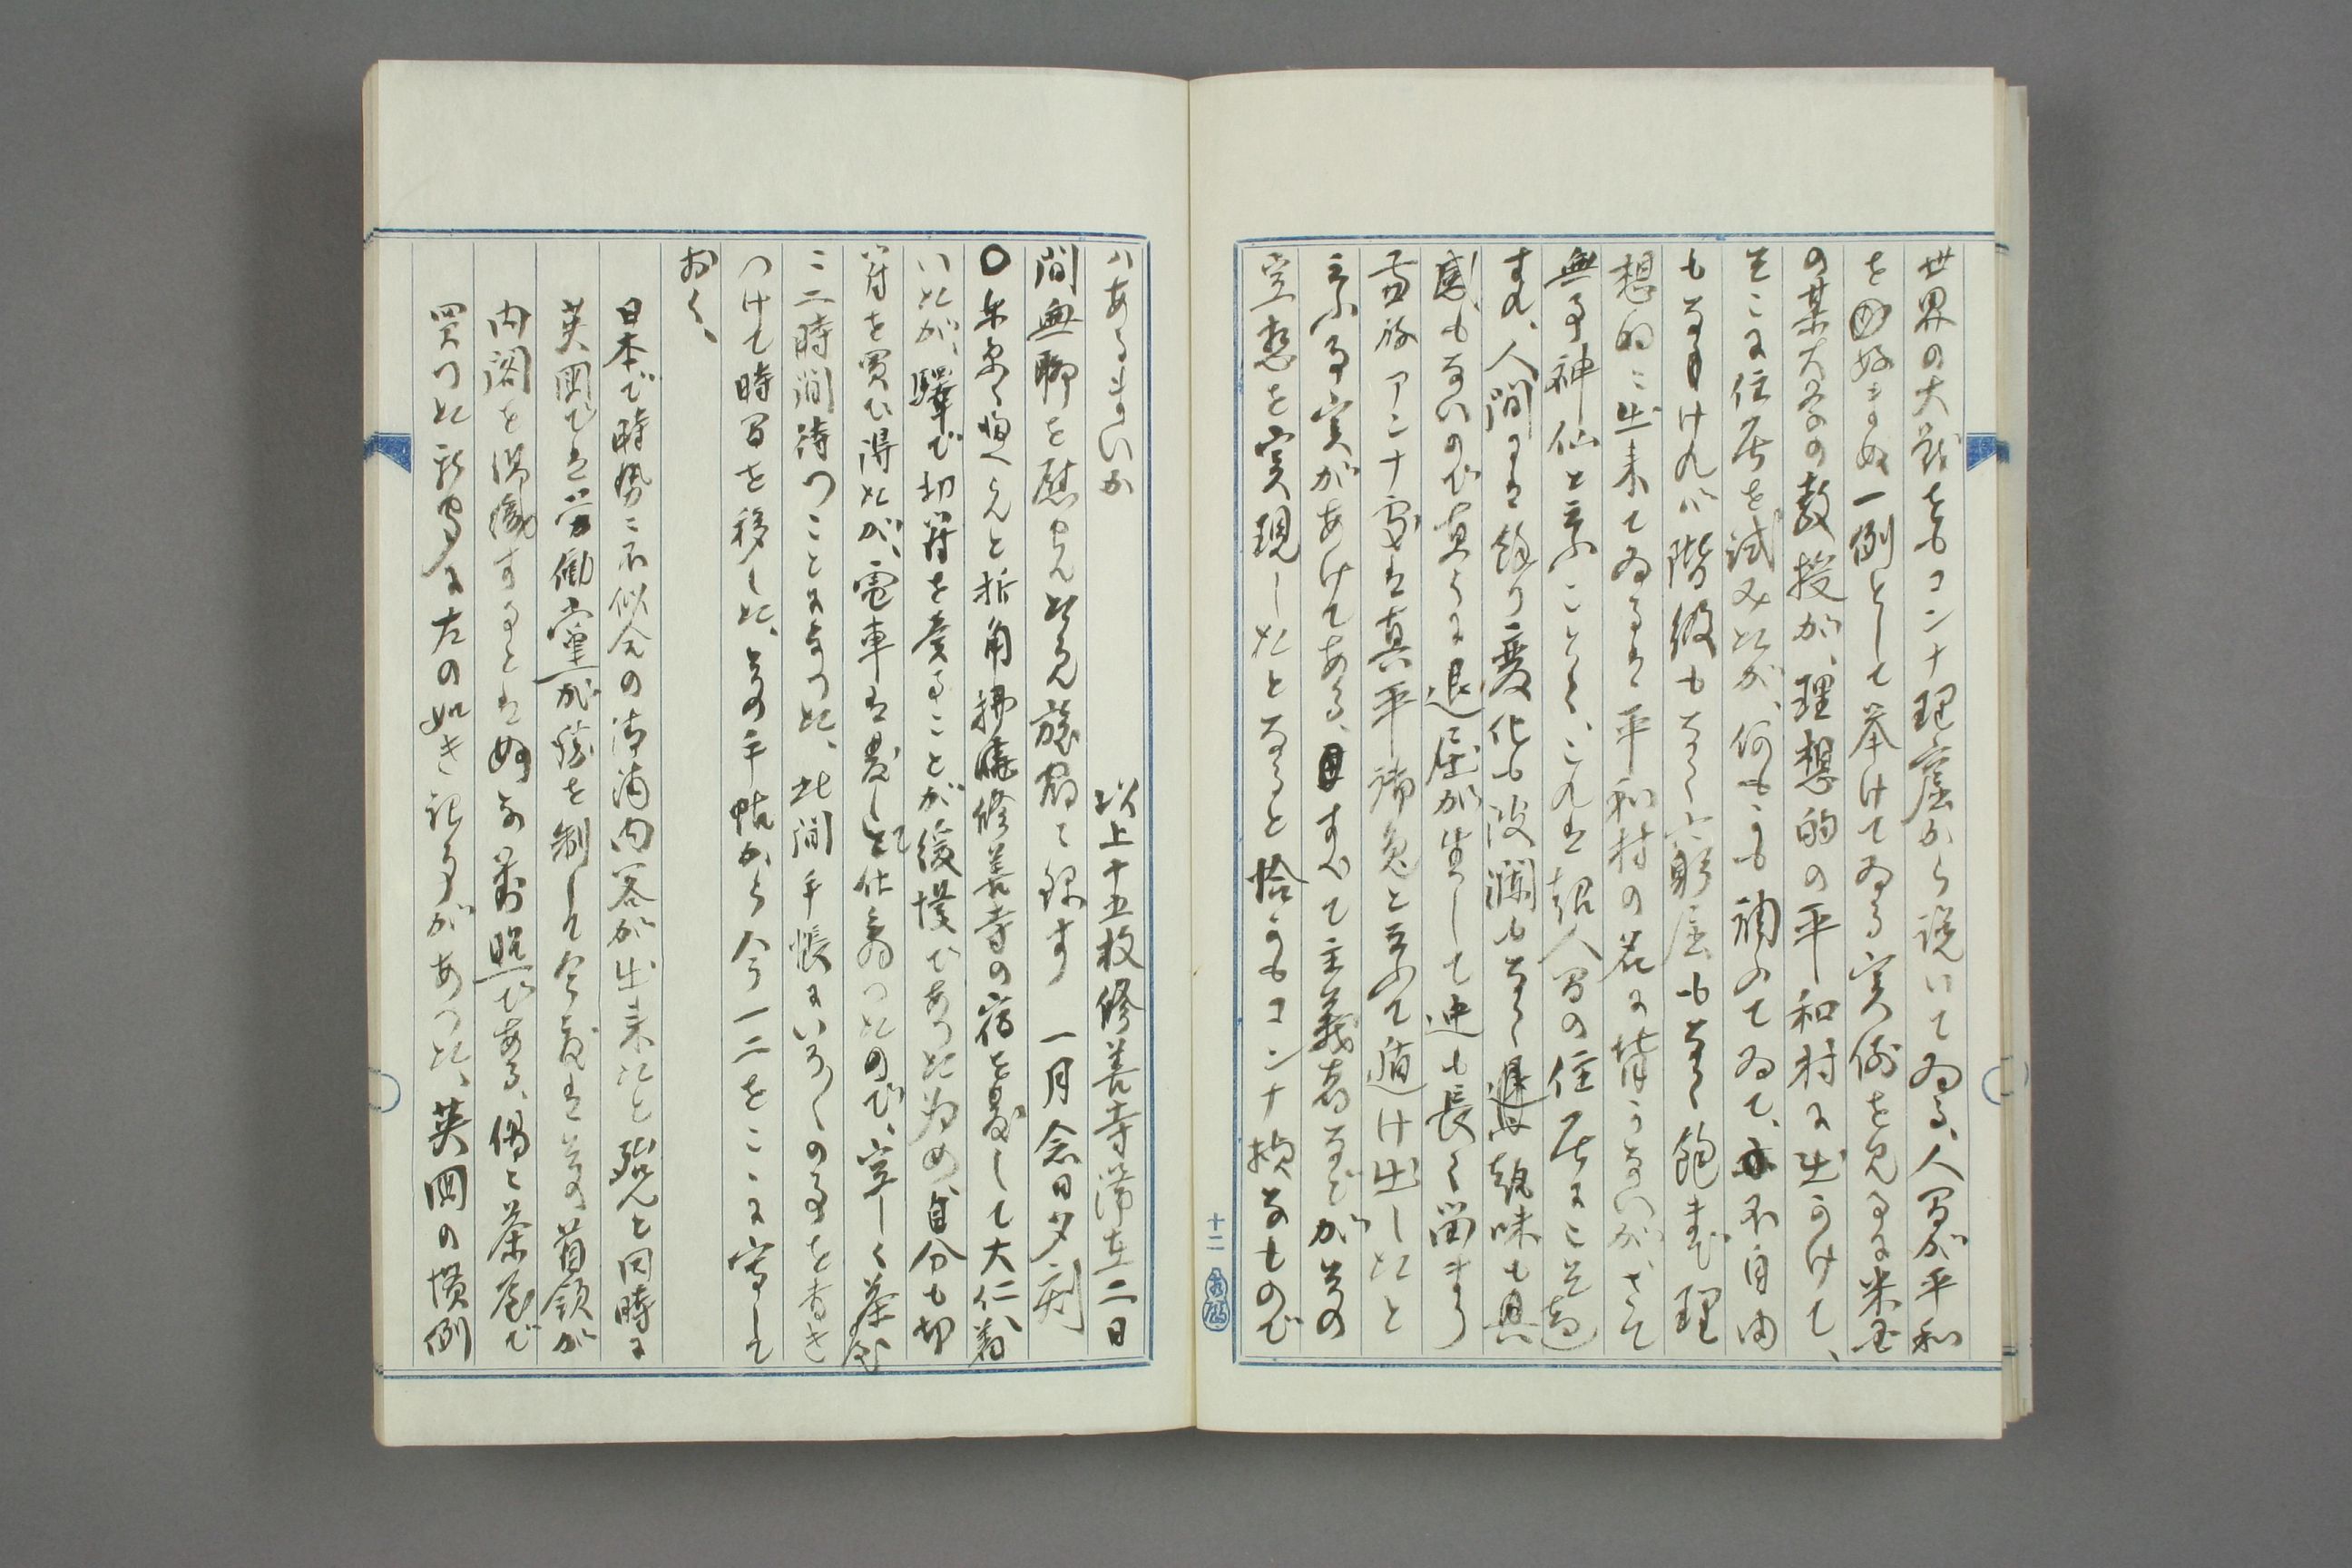 世界の大戦をもコンナ理窟から説いてゐる、人間が平和
を好まぬ一例として挙けてゐる実例を見るに米国
の某大学の教授が、理想的の平和村に出かけて、
そこに住居を試みたが、何もかも揃ふてゐて、不自由
もなければ階級もなく窮屈もなく飽まで理
想的に出来てゐるは平和村の名に背かないが、さて
無事神仙と云ふことく、これは超人間の住居にこそ適
すれ、人間には餘り変化も波瀾もなく趣味も興
感もないので直ぐに退屈が生して迚も長く留まり
アンナ処は真平御免と云ふて遁け出したと
云ふ事実があけてある、すべて主義者などがその
空想を実現したとなると恰かもコンナ損なもので
十二
ハあるまいか
以上十五枚修善寺滞在二日
間無聊を慰せんため旅宿に録す 一月念日夕刻
〇年忽く帰へらんと折角拂暁修善寺の宿を発して大仁へ着
いたが、驛で切符を売ることが緩慢であつた為め、自分も切
符を買ひ得たが、電車は発して仕舞つたので、空しく茶店
に二時間待つことになつた、此間手帳にいろ〱の事を書き
つけて時間を移した、その手帖から今一二をこゝに写して
おく、
日本で時勢に不似合の清浦内閣が出来たと殆んと同時に
英国では労働党が勝を制して今度はその首領が
内閣を組織するとは妙な対照である、偶と茶店で
買つた新聞に左の如き記事があつた、英国の慣例